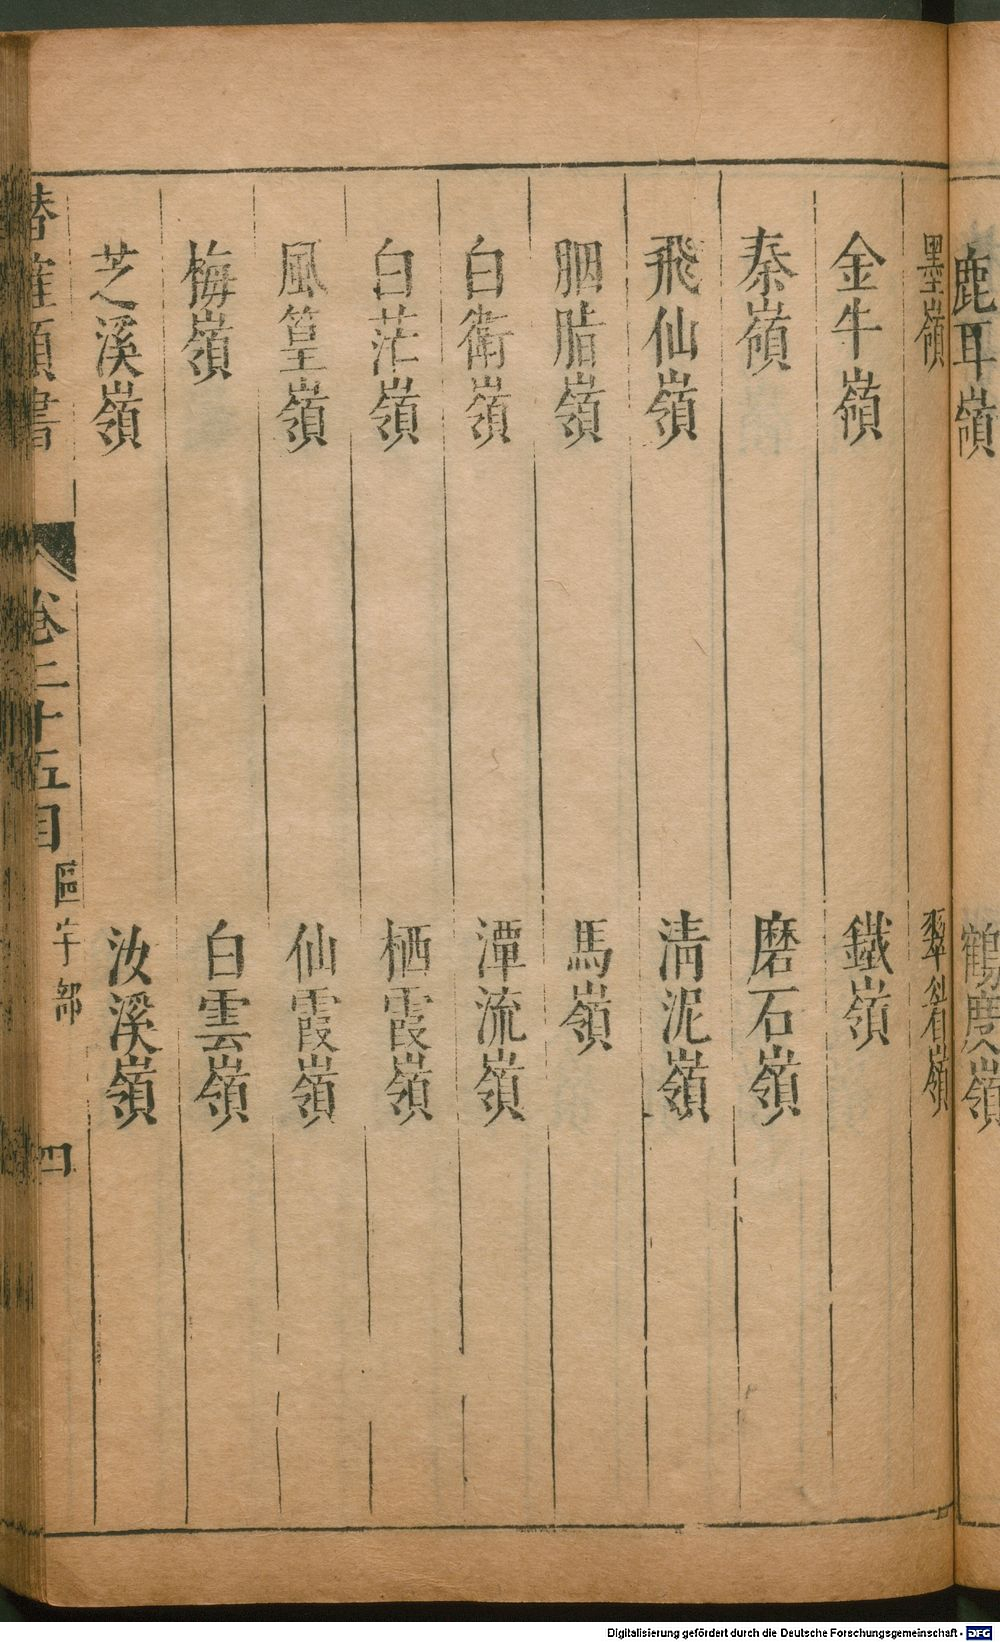 鹿耳嶺
鶴度嶺
墨嶺
翠眉嶺
金牛嶺
鐵嶺
秦嶺
磨石嶺
飛仙嶺
淸泥嶺
胭脂嶺
馬嶺
白衛嶺
潭流嶺
白茫嶺
栖霞嶺
風篁嶺
仙霞嶺
梅嶺
白雲嶺
芝溪嶺
汝溪嶺
潛確類書
卷二十五目
區宇部
四
Digitalisierung gefördert durch die Deutsche Forschungsgemeinschaft - DFG